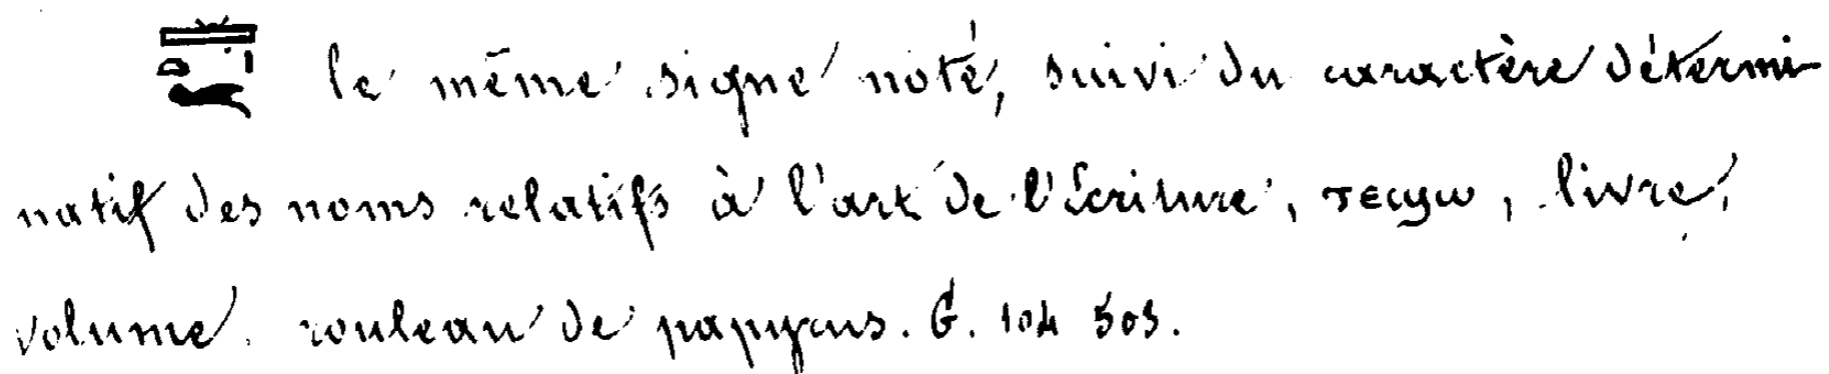 le même signe noté, suivi du caractère détermi-
natif des noms relatifs à l'art de l'Écriture, livre,
volume. rouleau de papyrus. G. 104